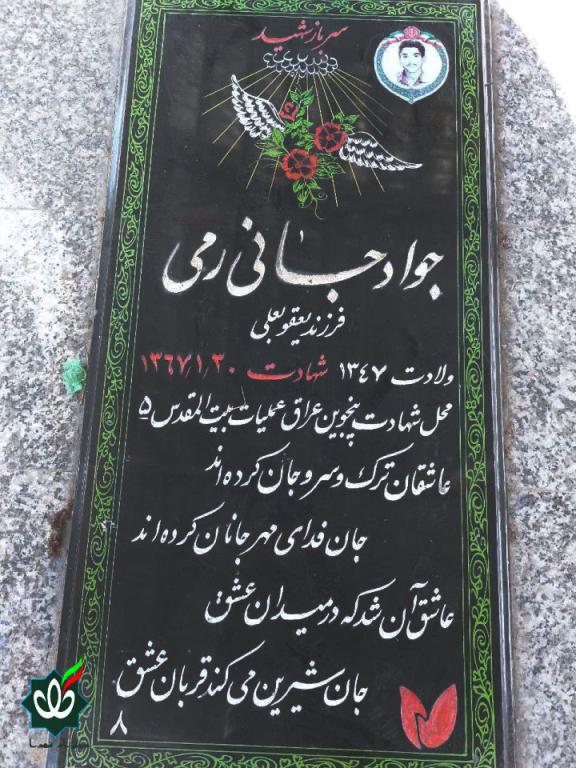 سرباز شهید
جواد جانی رمی
فرزند یعقوبعلی
ولادت ۱۳۴۷ شهادت ۱۳۶۷/۱/۳۰
محل شهادت پنجوین عراق عملیات بیت المقدس ۵
عاشقان ترک و سر و جان کرده اند
جان فدای مهر جانان کرده اند
عاشق آن شد که در میدان عشق
جان شیرین می کند قربان عشق
۸